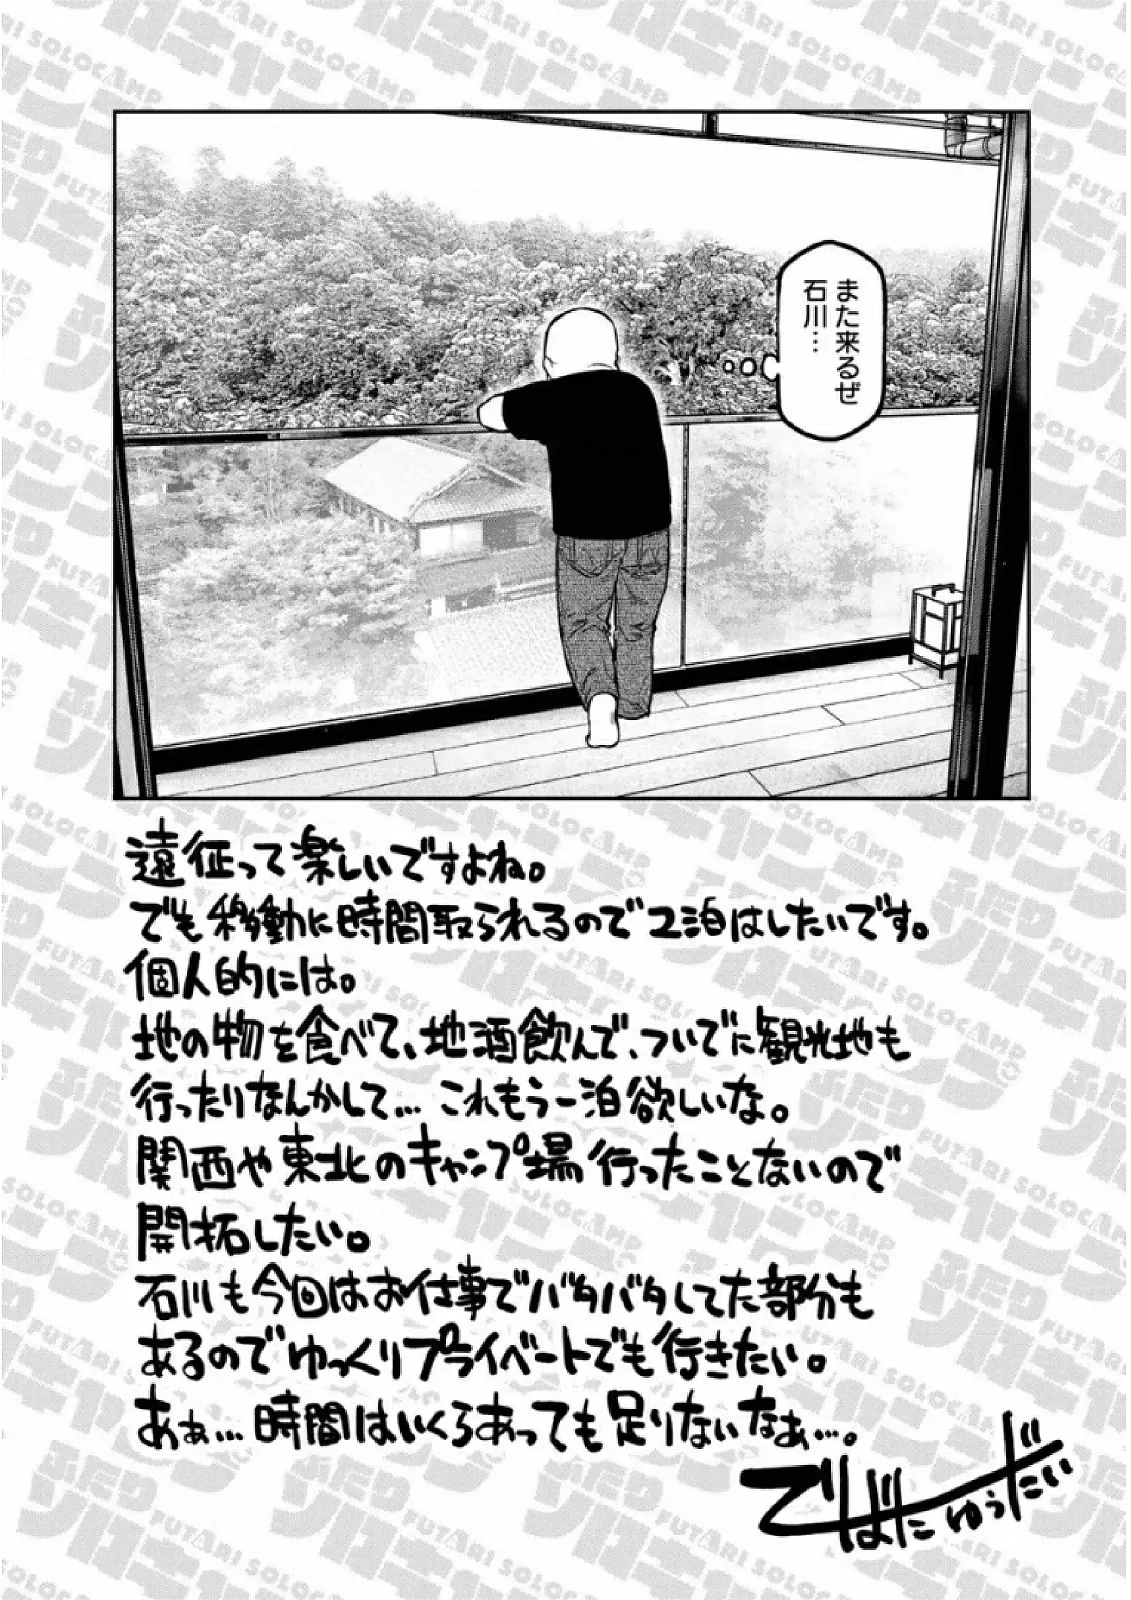 また来るぜ
石川…
遠征って楽しいですよね。
でも移動に時間取られるので2泊はしたいです。
個人的には。
地の物を食べて、地酒飲んで、ついでに観光地も
行ったりなんかして…これもう一泊欲しいな。
関西や東北のキャンプ場行ったことないので
開拓したい。
石川も今回はお仕事でバタバタしてた部分も
あるのでゆっくりプライベートでも行きたい。
あぁ…時間はいくらあっても足りないなぁ…。
でばたゆうだい
ふたりソロキャンプ
FUTARI SOLOCAMP